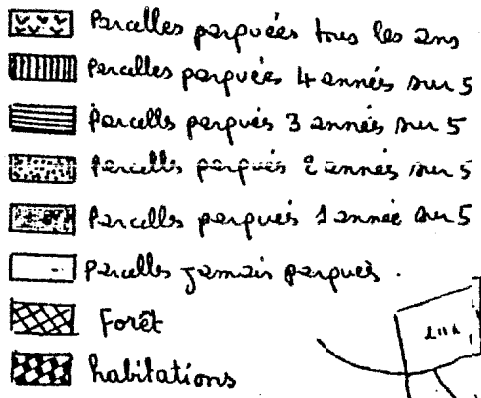 Parcelles parquées tous les ans
Parcelles parquées 4 années sur 5
Parcelles parqués 3 années sur 5
Parcelles parqués 2 années sur 5
Parcelles parqués 1 année sur 5
Parcelles jamais parqués.
Forêt
habitations